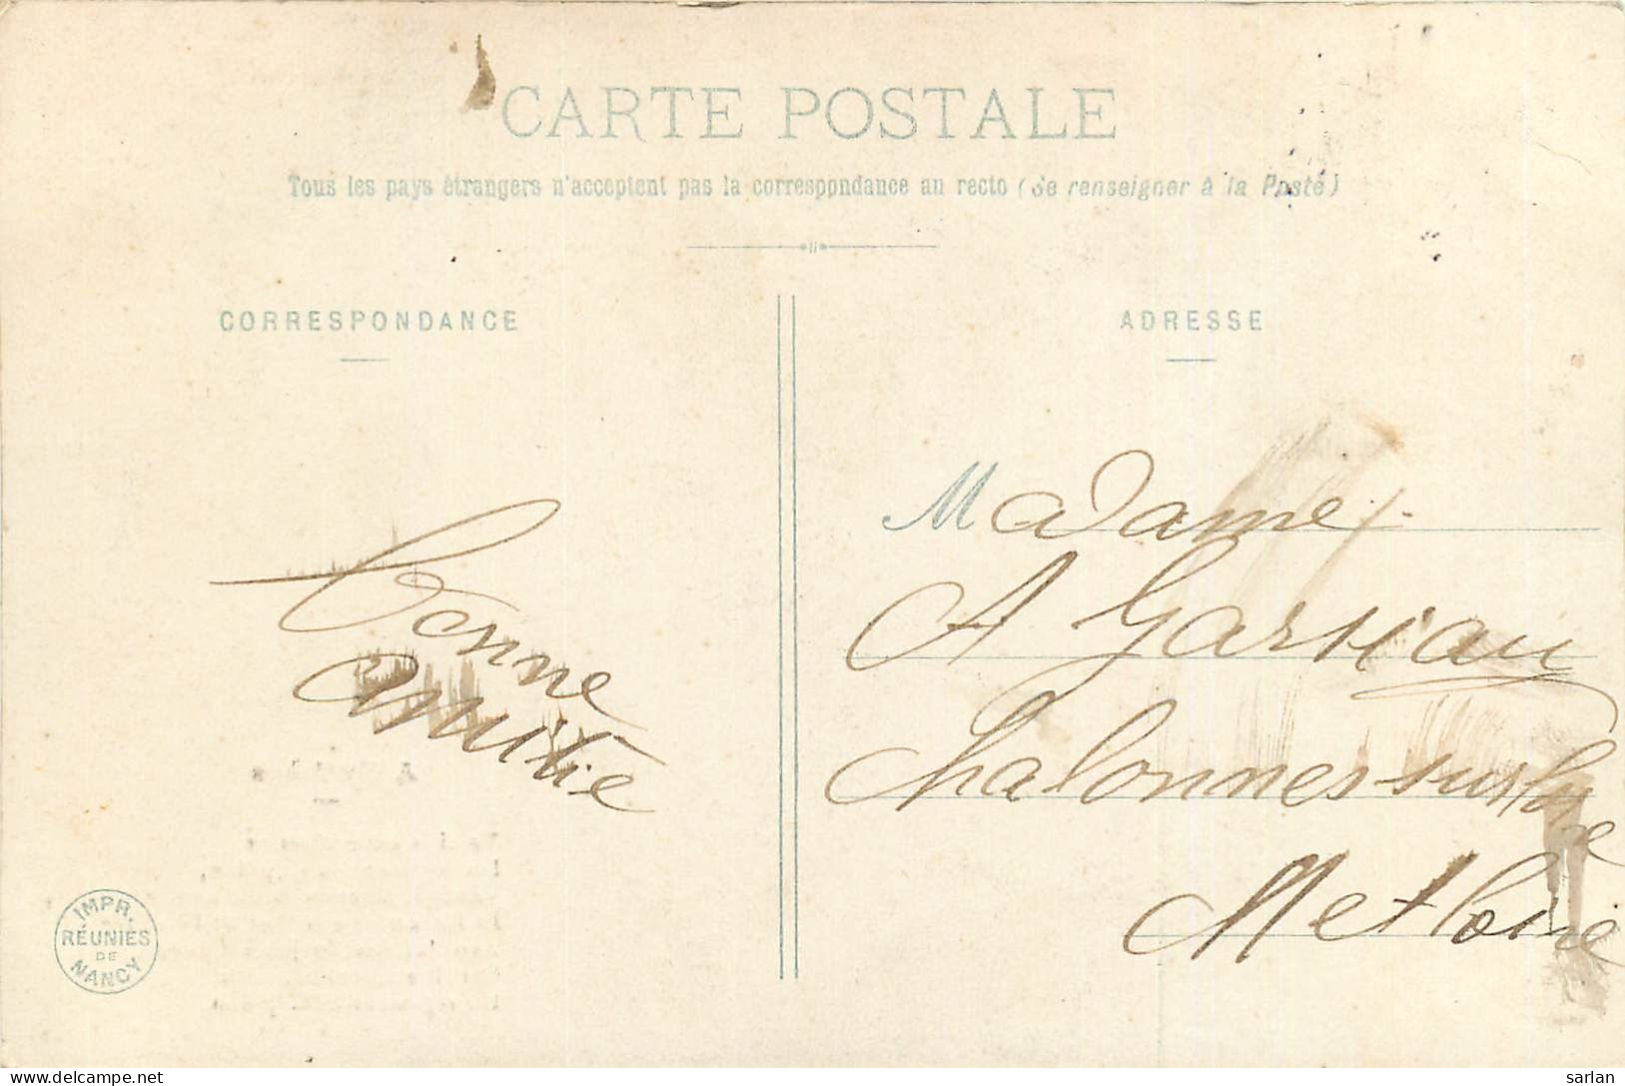 CARTE POSTALE
Tous les pays étrangers n'acceptent pas la correspondance au recto (Se renseigner à la Poste)
CORRESPONDANCE
ADRESSE
Bonne
amitié
Madame
A
Chalonnes sur Loire
M et Loire
IMPR.
RÉUNIES
DE
NANCY
https://www.delcampe.net
sarlan